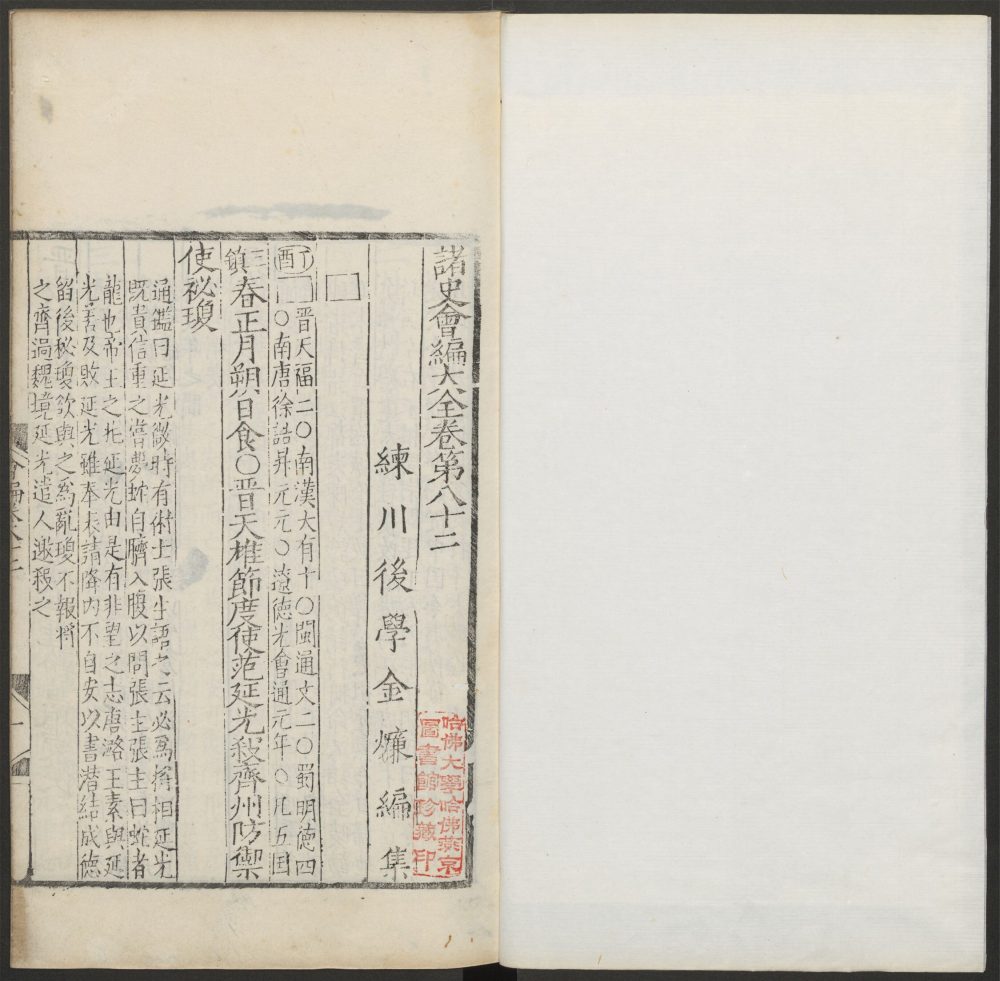 諸史會編大全卷第八十二
練川後學金燫編集
哈佛大學哈佛燕京
圖書館珍藏印
丁酉
晋天福二〇南漢大有十〇閩通文二〇蜀明德四
〇南唐徐誥昇元元〇遼德光會通元年〇凡五國
三鎮春正月朔日食〇晋天雄節度使范延光殺齊州防禦
使祕瓊
通鑑曰延光微時有術士張生語之云必爲將相延光
既貴信重之嘗夢蛇自臍入腹以問張生張生曰蛇者
龍也帝王之兆延光由是有非望之志唐潞王素與延
光善及敗延光雖奉表請降內不自安以書潜結成德
留後秘瓊欲與之爲亂瓊不報將
之齊過魏境延光遣人邀殺之